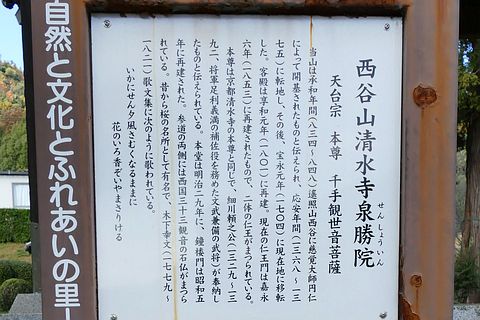 西谷山清水寺泉勝院
せんしょういん
天台宗　本尊　千手観世音菩薩
当山は承和年間（八三四〜八四八）遙照山西谷に慈覚大師円仁
によって開基されたものと伝えられ、応安年間（一三六八〜一三
七五）に転地し、その後、宝永元年（一七〇四）に現在地に移転
した。客殿は享和元年（一八〇一）に再建。現在の仁王門は嘉永
六年（一八五三）に再建されたもので、二体の仁王がまつられている。
本尊は京都清水寺の本尊と同じで、細川頼之公（一三二九〜一三
九二、将軍足利義満の補佐役を務めた文武兼備の武将）が奉納し
たものと伝えられている。本堂は明治二九年に、鐘楼門は昭和五
年に再建された。参道の両側には西国三十三観音の石仏がまつら
れている。昔から桜の名所として有名で、木下幸文（一七七九〜
一八二一）歌文集に次のように歌われている。
いかにせん夕風さむくなるままに
花のいろ香ぞいやまさりける
自然と文化とふれあいの里